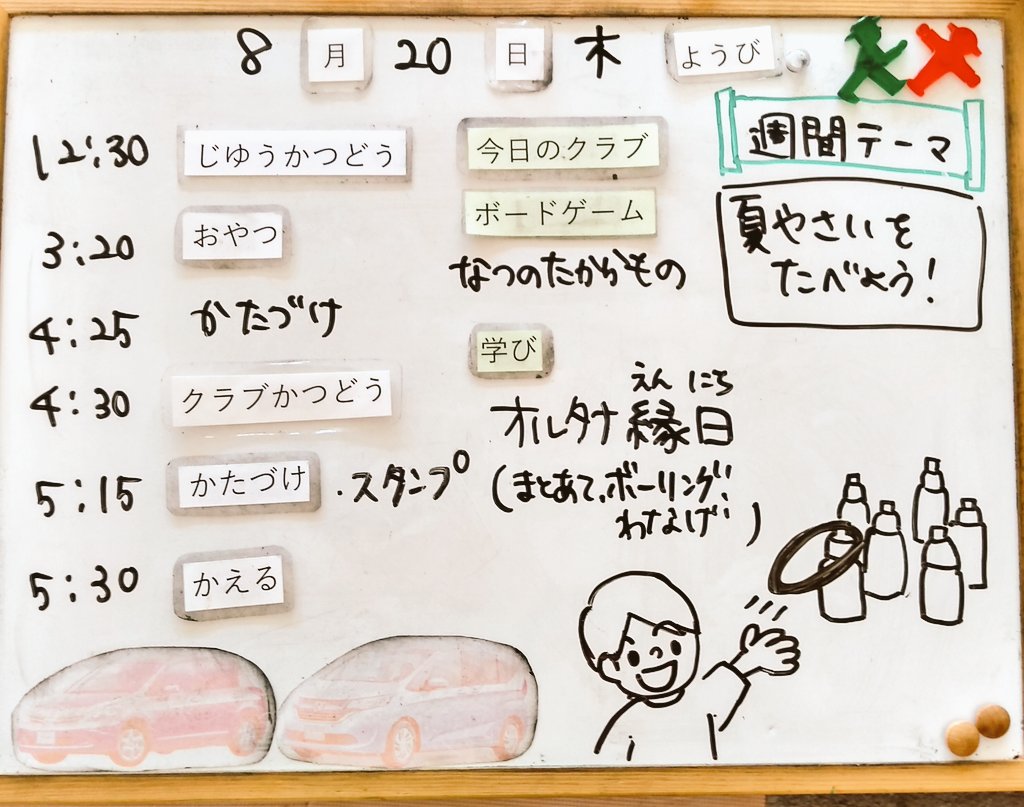 8月20日木ようび
12:30 じゆうかつどう
3:20 おやつ
4:25 かたづけ
4:30 クラブかつどう
5:15 かたづけ ・スタンプ
5:30 かえる
今日のクラブ
ボードゲーム
なつのたからもの
学び
えん にち
オルタナ縁日
(まとあて、ボーリング、
わなげ)
週間テーマ
夏やさいを
たべよう!